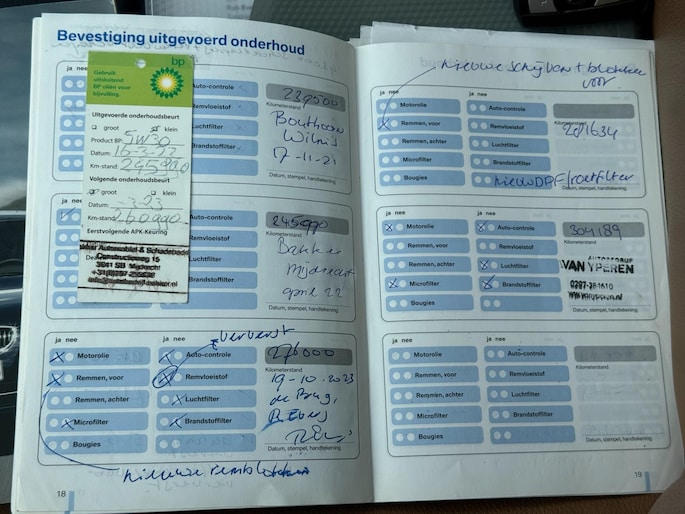 Bevestiging uitgevoerd onderhoud
bp
Gebruik
uitsluitend
BP oliën voor
bijvulling.
Uitgevoerde onderhoudsbeurt
groot klein
Product BP: 5W30
Datum: 16-3-22
Km-stand: 245990
Volgende onderhoudsbeurt
groot klein
Datum: -3-23
Km-stand: 260990
Eerstvolgende APK-Keuring
Automobiel & Schade
Constructieweg 15
3641 SB Mijdrecht
ja nee
Auto-controle
Remvloeistof
Luchtfilter
Brandstoffilter
239500
Kilometerstand
Bouthoorn
Wilnis
17-11-21
Datum, stempel, handtekening
ja nee
Auto-controle
Remvloeistof
Luchtfilter
Brandstoffilter
245990
Kilometerstand
Bakker
Mijdrecht
april 22
Datum, stempel, handtekening
ververst
ja nee ja nee
Motorolie Auto-controle
Remmen, voor Remvloeistof
Remmen, achter Luchtfilter
Microfilter Brandstoffilter
Bougies
276000
Kilometerstand
19-10-2023
de Brug,
R Evers
Datum, stempel, handtekening
nieuwe remblokken
18
nieuwe schijven + blokken
voor
ja nee ja nee
Motorolie Auto-controle
Remmen, voor Remvloeistof
Remmen, achter Luchtfilter
Microfilter Brandstoffilter
Bougies nieuw DPF/roetfilter
281634
Kilometerstand
Datum, stempel, handtekening
ja nee ja nee
Motorolie Auto-controle
Remmen, voor Remvloeistof
Remmen, achter Luchtfilter
Microfilter Brandstoffilter
Bougies
304189
Kilometerstand
AUTOBEDRIJF
VAN YPEREN
Datum, stempel, handtekening
ja nee ja nee
Motorolie Auto-controle
Remmen, voor Remvloeistof
Remmen, achter Luchtfilter
Microfilter Brandstoffilter
Bougies
Kilometerstand
Datum, stempel, handtekening
19